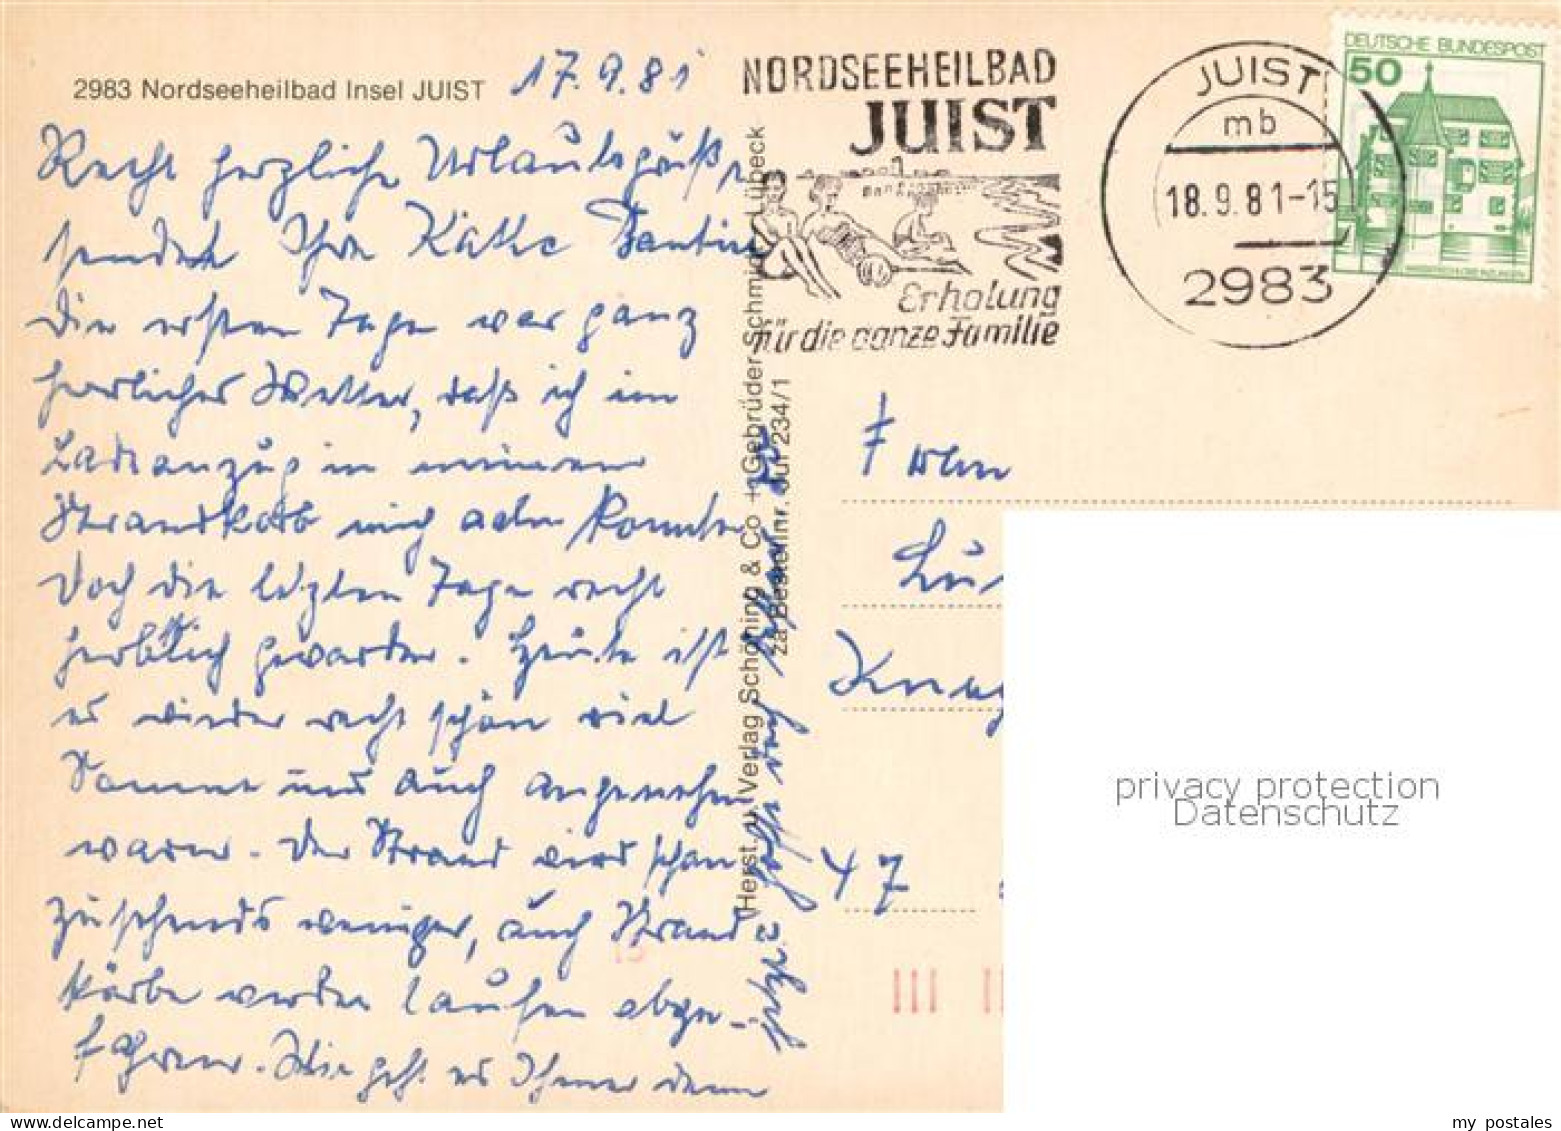 2983 Nordseeheilbad Insel JUIST
17.9.81
Recht herzliche Urlaubsgrüße
sendet Ihre Käthe
Die ersten Tage war ganz
herrliches Wetter, daß ich im
Badeanzug in meinem
Strandkorb mich aalen konnte
Doch die letzten Tage recht
herbstlich geworden. Heute ist
es wieder recht schön viel
Sonne und auch angenehm
warm. Der Strand wird schon
zusehends weniger, auch Strand
körbe werden laufen abge-
fahren. Wie geht es Ihnen denn
jetzt? hoffe doch besser
Herst. u. Verlag Schöning & Co + Gebrüder Schmidt, Lübeck
za Bestellnr. Jui 234/1
NORDSEEHEILBAD
JUIST
Erholung
für die ganze Familie
JUIST
mb
18.9.81-15
2983
DEUTSCHE BUNDESPOST
50
Frau
47
privacy protection
Datenschutz
my postales